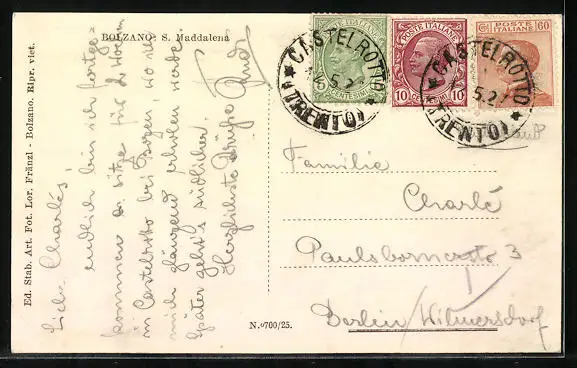 BOLZANO: S. Maddalena
Ed. Stab. Art. Fot. Lor. Fränzl - Bolzano. Ripr. viet.
N.º 700/25.
POSTE ITALIANE
5
CENTESIMI
POSTE ITALIANE
10 10
POSTE ITALIANE 60
CASTELROTTO
(TRENTO)
CASTELROTTO
(TRENTO)
Liebe Charlés!
endlich bin ich fortge-
kommen u. sitze für 2 Wochen
in Castelrotto bei Bozen wo ich
mich glänzend erholen werde.
Später geht's südlicher.
Herzlichste Grüße
Familie
Charlé
Paulsbornerstr 3
Berlin/Wilmersdorf